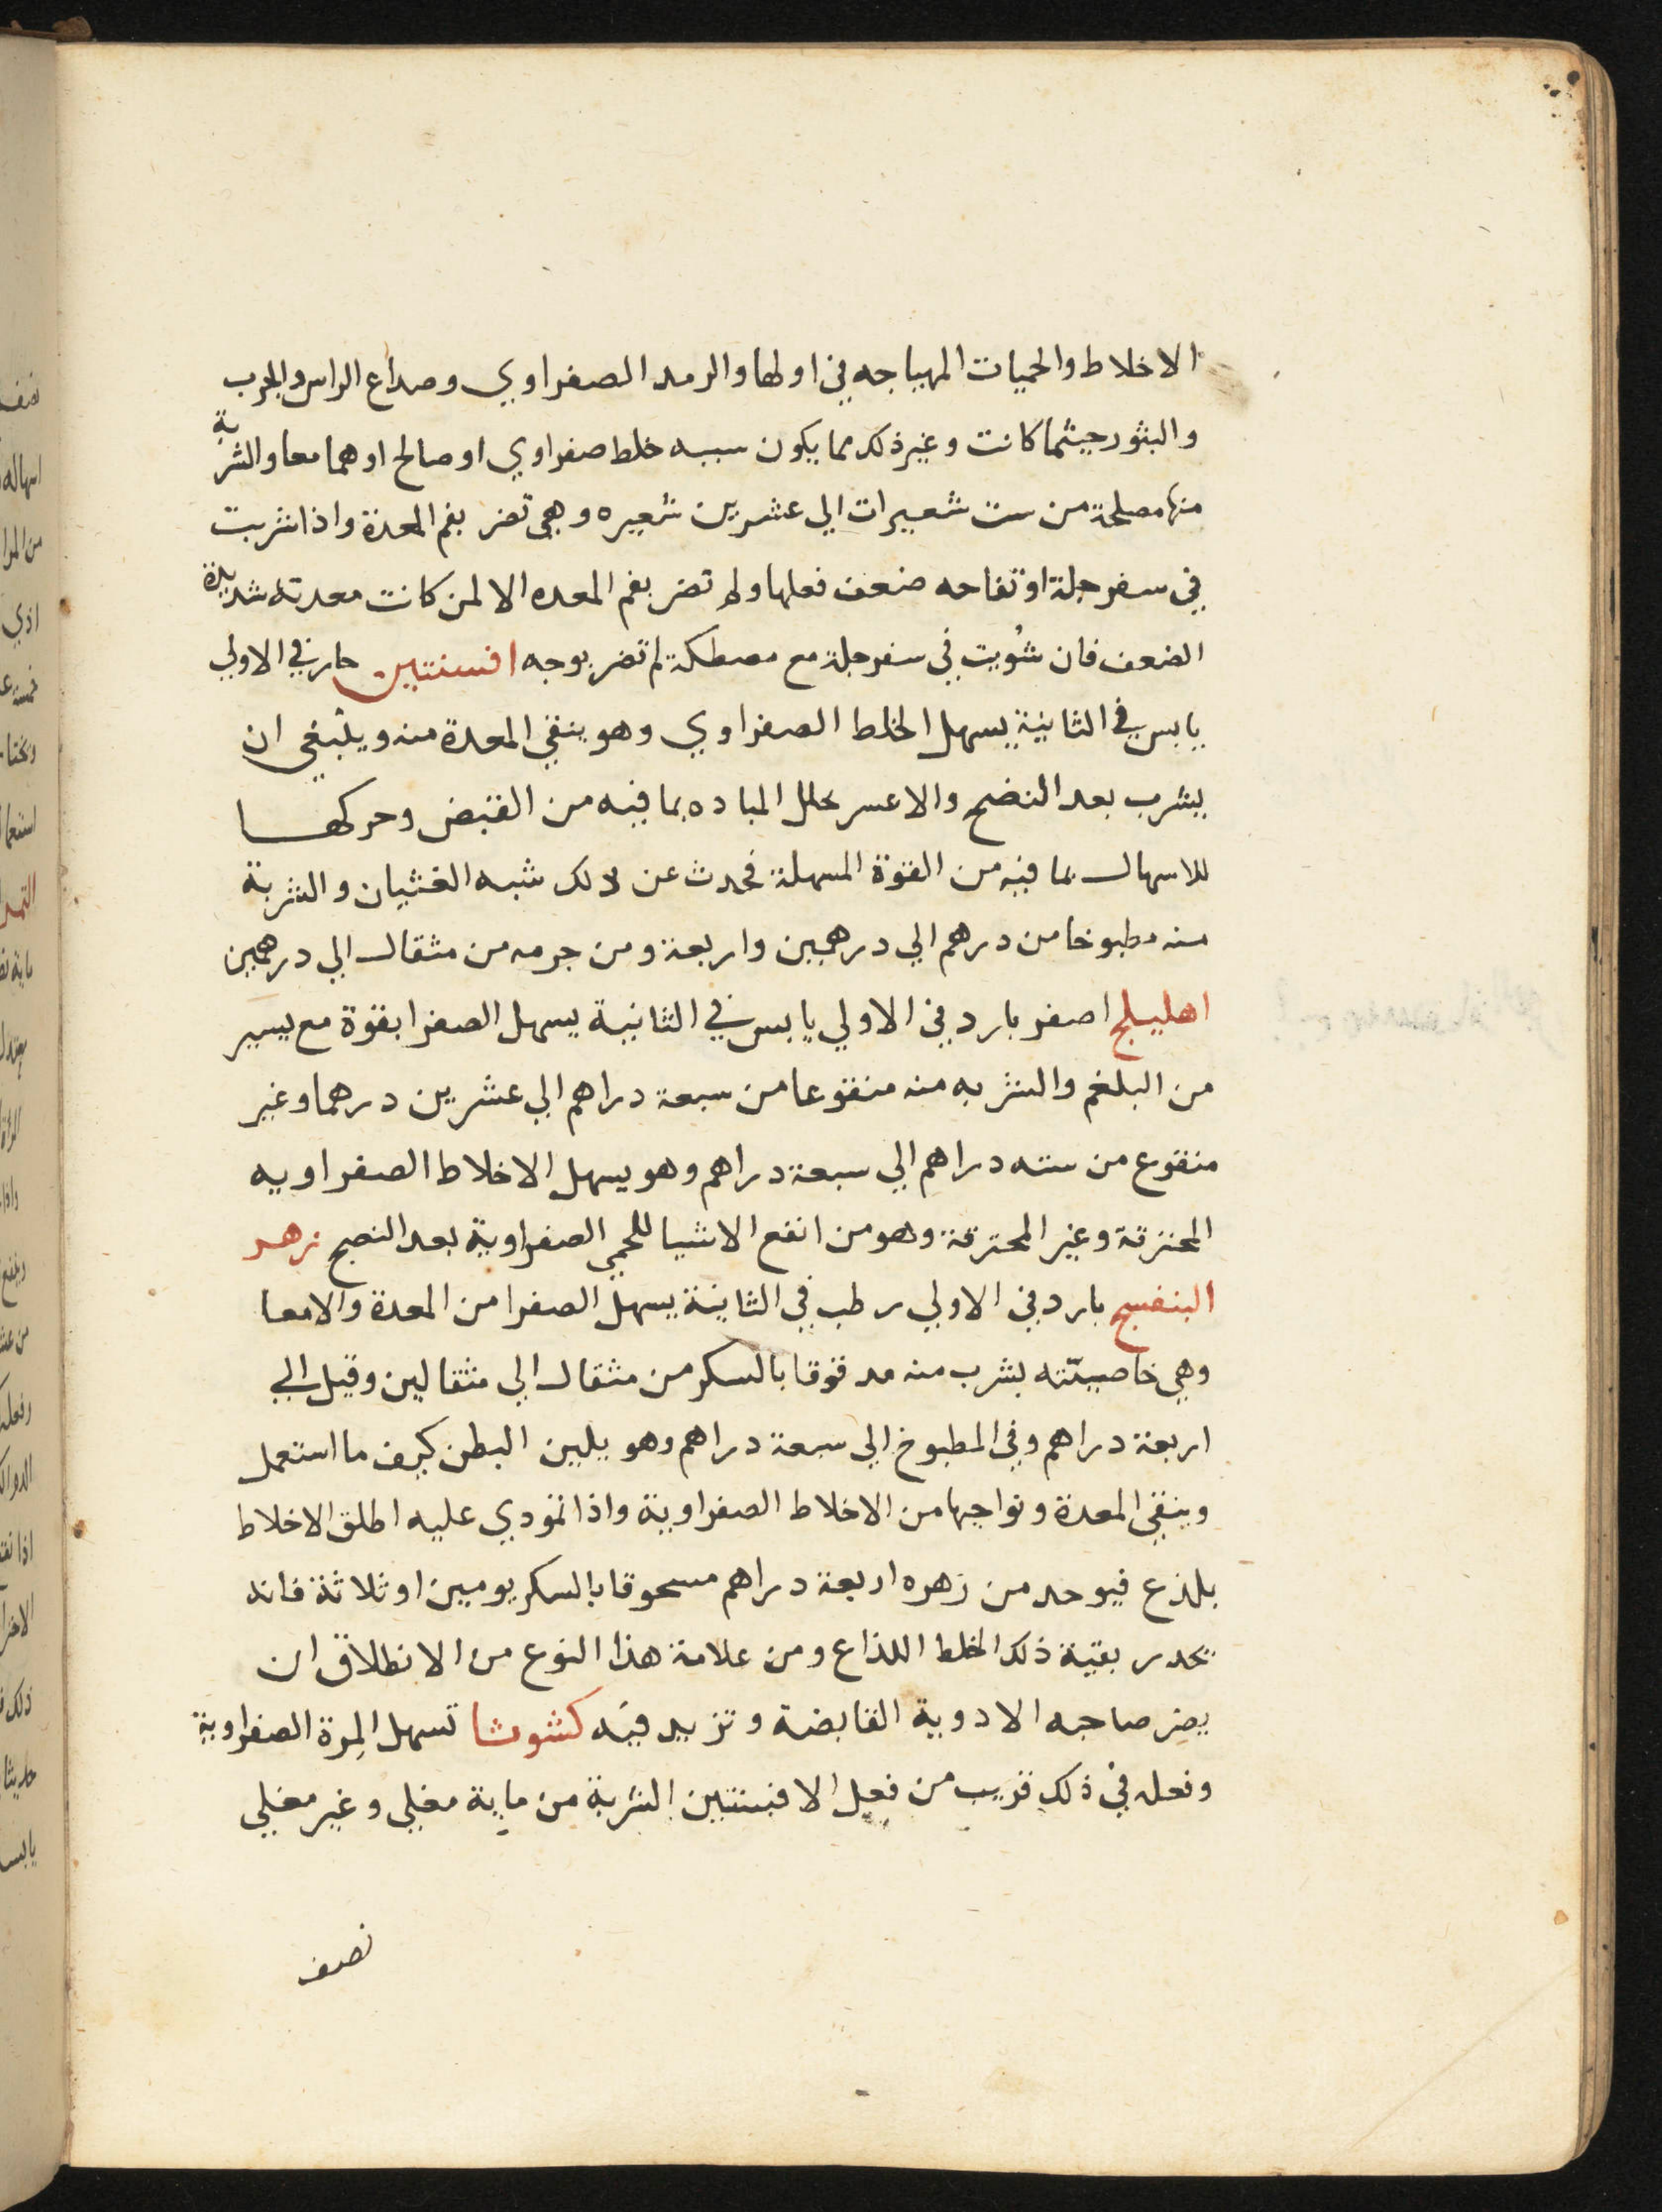 الاخلاط والحميات المهياجه في اولها والرمد الصفراوي وصداع الراس والجرب
والبثور حيثما كانت وغير ذلك مما يكون سببه خلط صفراوي او صالح اوهما معا والشربة
منها مصلحة من ست شعيرات الي عشرين شعيره وهي تضر بفم المعدة واذا شربت
في سفرجلة او تفاحه ضعف فعلها ولم تضر بفم المعده الا لمن كانت معدته شديدة
الضعف فان شُويت في سفرجلة مع مصطكة لم تضر بوجه افسنتين حار في الاولي
يابس في الثانية يسهل الخلط الصفراوي وهو ينقي المعدة منه وينبغي ان
يشرب بعد النضج والا عسر تحلل الماده بما فيه من القبض وحركها
للاسهال بما فيه من القوة المسهلة فحدث عن ذلك شبه الغشيان والشربة
منه مطبوخا من درهم الي درهمين واربعة ومن جرمه من مثقال الي درهمين
اهليلج اصفر بارد في الاولي يابس في الثانية يسهل الصفرا بقوة مع يسير
من البلغم والشربه منه منقوعا من سبعة دراهم الي عشرين درهما وغير
منقوع من سته دراهم الي سبعة دراهم وهو يسهل الاخلاط الصفراويه
المحترقة وغير المحترقة وهو من انفع الاشيا للحمي الصفراوية بعد النضج زهر
البنفسج بارد في الاولي رطب في الثانية يسهل الصفرا من المعدة والامعا
وهي خاصيّته يشرب منه مدقوقا بالسكر من مثقال الي مثقالين وقيل الي
اربعة دراهم وفي المطبوخ الي سبعة دراهم وهو يلين البطن كيف ما استعمل
وينقي المعدة ونواحيها من الاخلاط الصفراوية واذا تمودي عليه اطلق الاخلاط
بلذع فيوخد من زهره اربعة دراهم مسحوقا بالسكر يومين او ثلاثة فانه
يحدر بقية ذلك الخلط اللذاع ومن علامة هذا النوع من الانطلاق ان
يضر صاحبه الادوية القابضة وتزيد فيه كشوشا تسهل المِرة الصفراوية
وفعله في ذلك قريب من فعل الافسنتين الشربة من مايه مغلي وغير مغلي
نصف